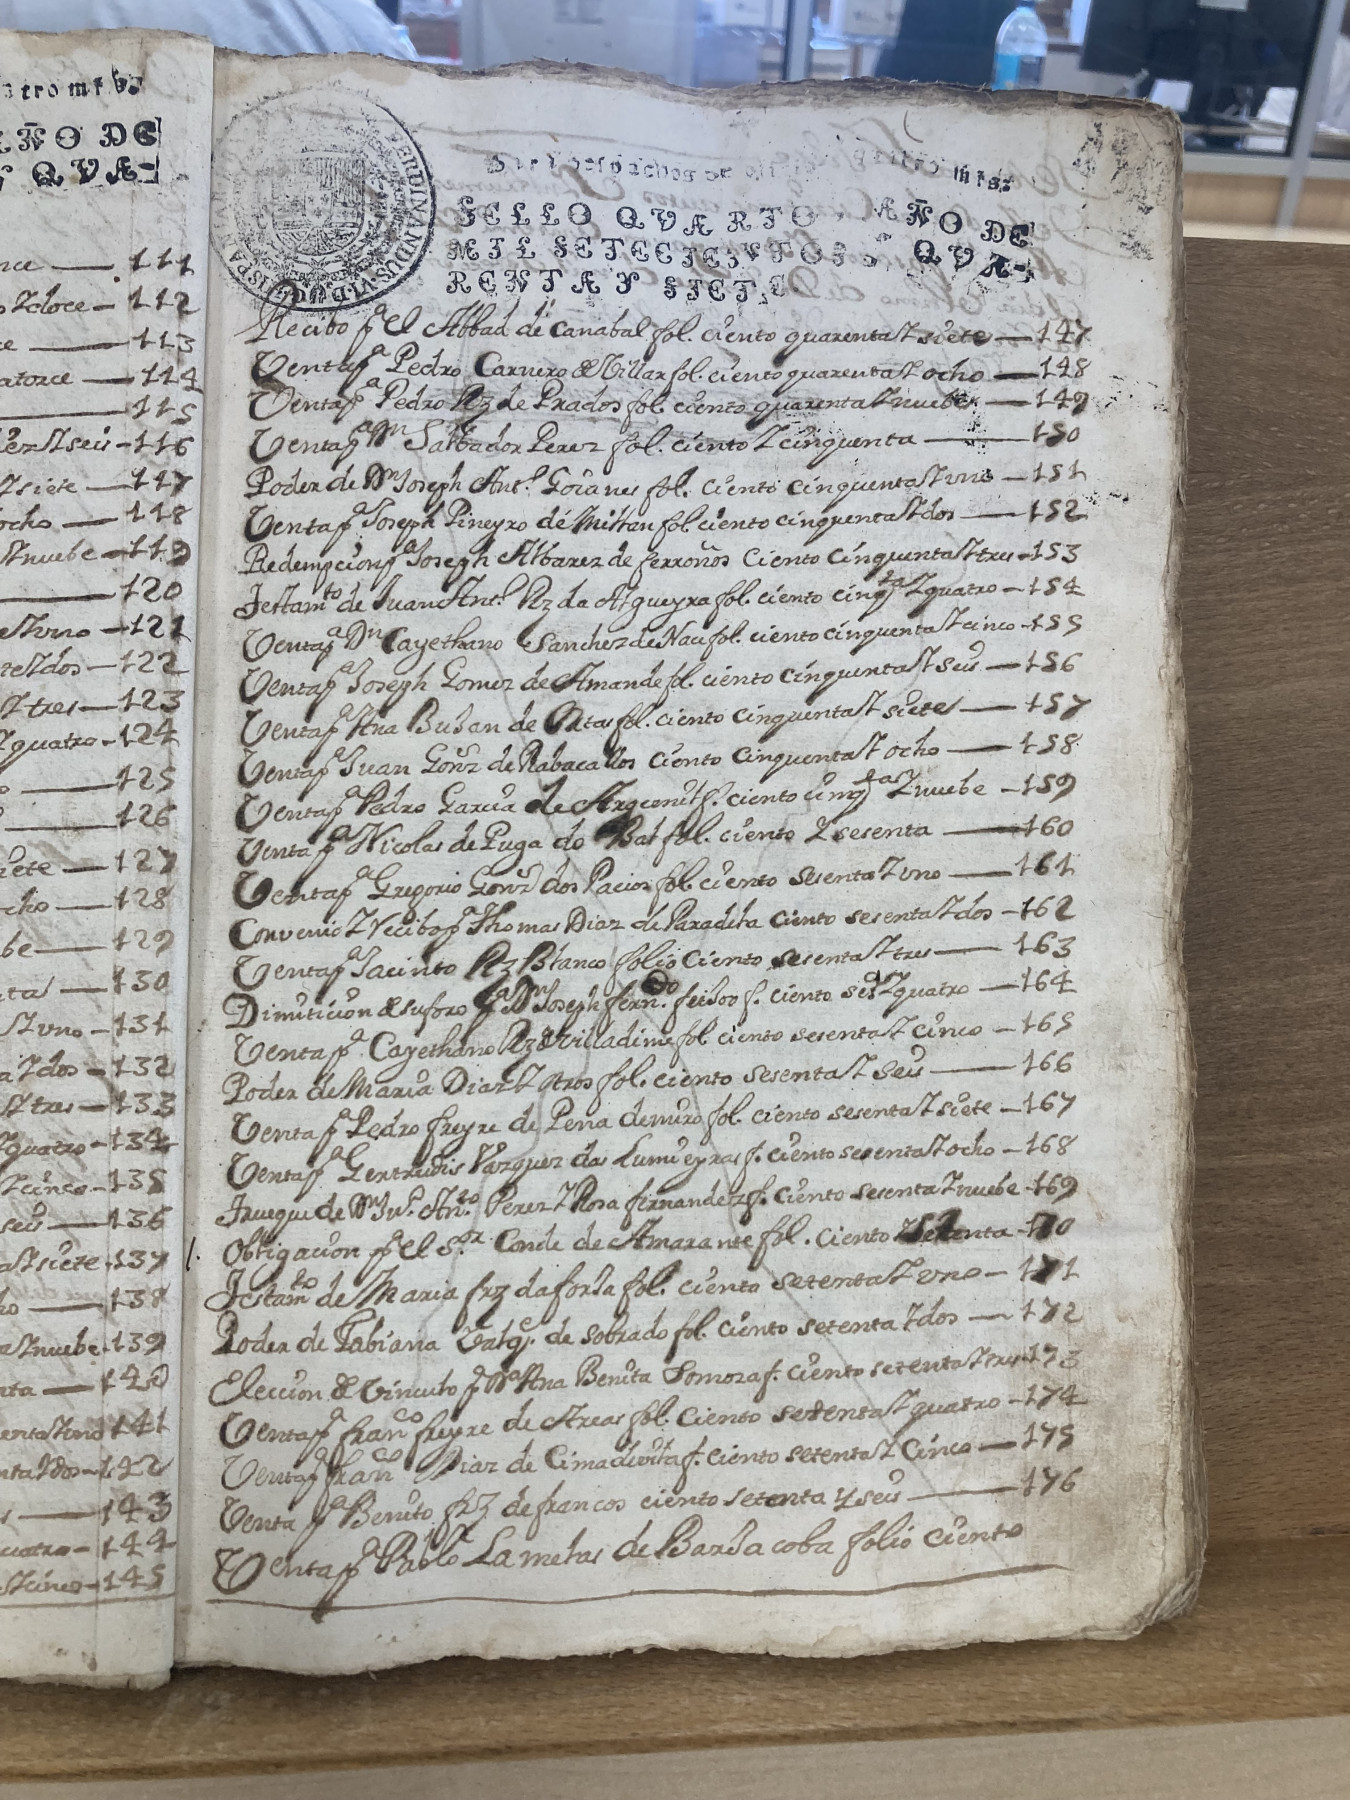 atro mrs.
AÑO DE
Y QVA-
nce — 111
o Y doce - 112
ce — 113
atorce — 114
— 115
diez Y seis - 116
Y siete — 117
ocho — 118
Y nuebe — 119
— 120
te Y uno - 121
nte Y dos - 122
Y tres — 123
Y quatro - 124
— 125
— 126
siete — 127
ocho — 128
be — 129
nta — 130
Y uno - 131
a Y dos - 132
Y tres — 133
Y quatro - 134
Y cinco - 135
seis — 136
a Y siete - 137
ho — 138
a Y nuebe - 139
nta — 140
enta Y uno 141
nta Y dos - 142
s — 143
cuatro - 144
Y cinco - 145
FERDINANDUS VI D G HISPANIAR
SELLO QVARTO AÑO DE
MIL SETECIENTOS Y QVA-
RENTA Y SIETE
Recibo pa. el Abbad de Canabal fol. ciento quarenta Y siete — 147
Venta pa. Pedro Carnero de Villar fol. ciento quarenta Y ocho — 148
Venta pa. Pedro Rz de Prados fol. ciento quarenta Y nuebe — 149
Venta pa. Dn Salbador Perez fol. ciento Y cinquenta — 150
Poder de Dn Joseph Antº. Goianes fol. ciento cinquenta Y uno — 151
Venta pa. Joseph Pineyro de Millan fol. ciento cinquenta Y dos — 152
Redempcion pa. Joseph Albarez de ferroños ciento cinquenta Y tres - 153
Testamto de Juan Antº. Rz da Algueyra fol. ciento cinqta Y quatro - 154
Venta pa. Dn Cayethano Sanchez de Nau fol. ciento cinquenta Y cinco - 155
Venta pa. Joseph Gomez de Amande fol. ciento cinquenta Y seis — 156
Venta pa. Ana Bujan de fol. ciento cinquenta Y siete — 157
Venta pa. Juan Gonz de Rabacallos ciento cinquenta Y ocho — 158
Venta pa. Pedro Garcia de f. ciento cinqta Y nuebe - 159
Venta pa. Nicolas de Puga do Bal fol. ciento Y sesenta — 160
Venta pa. Gregorio Gonz dos Pacios fol. ciento sesenta Y uno — 161
Convenio Y recibo pa. Thomas Diaz de Paradela ciento sesenta Y dos - 162
Venta pa. Jacinto Rz Blanco folio ciento sesenta Y tres — 163
Dimiticion de su foro pa. Dn Joseph ferndo. feijoo f. ciento sesta Y quatro - 164
Venta pa. Cayethano Rz de Villadime fol ciento sesenta Y cinco - 165
Poder de Maria Diaz Y otros fol. ciento sesenta Y seis — 166
Venta pa. Pedro freyre de Pena demiro fol. ciento sesenta Y siete - 167
Venta pa. Gertrudis Vazquez das Lumieyras f. ciento sesenta Y ocho - 168
Trueque de Dn Ju. Anto. Perez Y Rosa fernandez f. ciento sesenta Y nuebe - 169
Obligacion pa. el Sor. Conde de Amarante fol. ciento Y setenta - 170
Testamto de Maria frz da forja fol. ciento setenta Y uno - 171
Poder de Fabiana de Sobrado fol. ciento setenta Y dos — 172
Eleccion de Vinculo pr Da Ana Benita Somoza f. ciento setenta Y tres 173
Venta pa. franco freyre de Areas fol. ciento setenta Y quatro - 174
Venta pa. franco Diaz de Cimadevila f. ciento setenta Y Cinco — 175
Venta pa. Benito frz de francos ciento setenta y seis — 176
Venta pa. Pablo Lamelas de Barja coba folio ciento